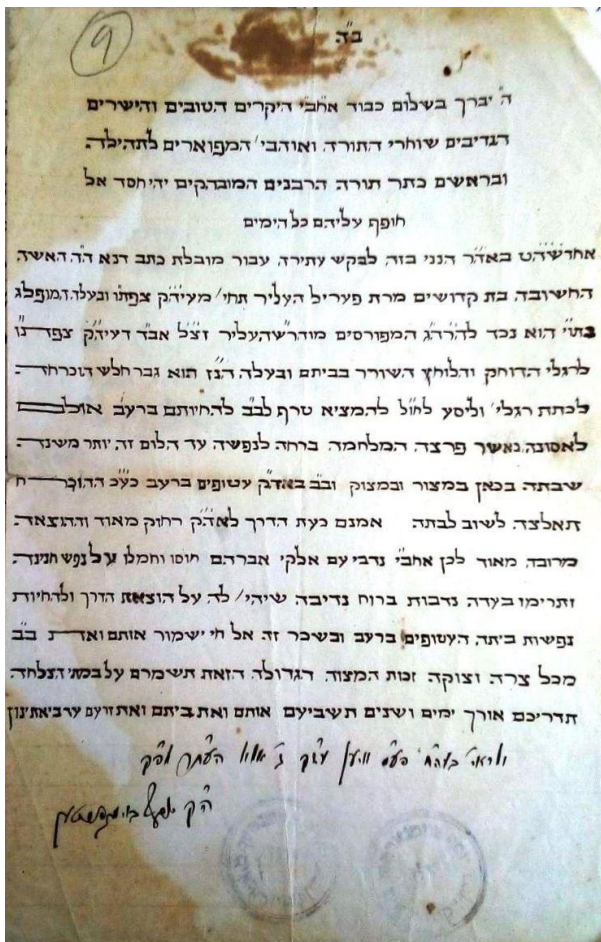 9
ב״ה
ה׳ יברך בשלום כבוד אחב״י היקרים הטובים והישרים
הנדיבים שוחרי התורה ואוהבי׳ המפוארים לתהילה
ובראשם כתר תורה הרבנים המובהקים יהי חסד אל
חופף עליהם כל הימים
הנני בזה לבקש עתירה עבור מובלת כתב דנא ה״ה האשה
החשובה בת קדושים מרת פעריל העליר תחי׳ מעיה״ק צפת״ו ובעלה המופלג
הוא נכד להרה״ג המפורסים העליר זצ״ל אב״ד דעיה״ק צפת
לרגלי הדוחק והלוחץ השורר בביתם ובעלה הנ״ז הוא גבר חלש הוכרחה
לכתת רגלי׳ וליסע לחו״ל להמציא טרף לב״ב להחיותם ברעב אולם
לאסונה כאשר פרצה המלחמה ברחה לנפשה עד הלום זה יותר משנה
שבתה בכאן במצור ובמצוק וב״ב באה״ק עטופים ברעב כע״כ ההוכרח
תאלצה לשוב לבתה אמנם כעת הדרך לאה״ק רחוק מאוד וההוצאה
מרובה מאוד לכן אחב״י נדבי עם אלקי אברהם חוסו וחמלו על נפש
ותרימו בעדה נדבות ברוח נדיבה שיהי׳ לה על הוצאת הדרך ולהחיות
נפשות ביתה העטופים ברעב ובשכר זה אל חי ישמור אותם ואת ב״ב
מכל צרה וצוקה זכות המצוה הגדולה הזאת תשמרם על במתי הצלחה
תדריכם אורך ימים ושנים תשביעם אותם ואת ביתם ואת זרעם עד ביאת ינון